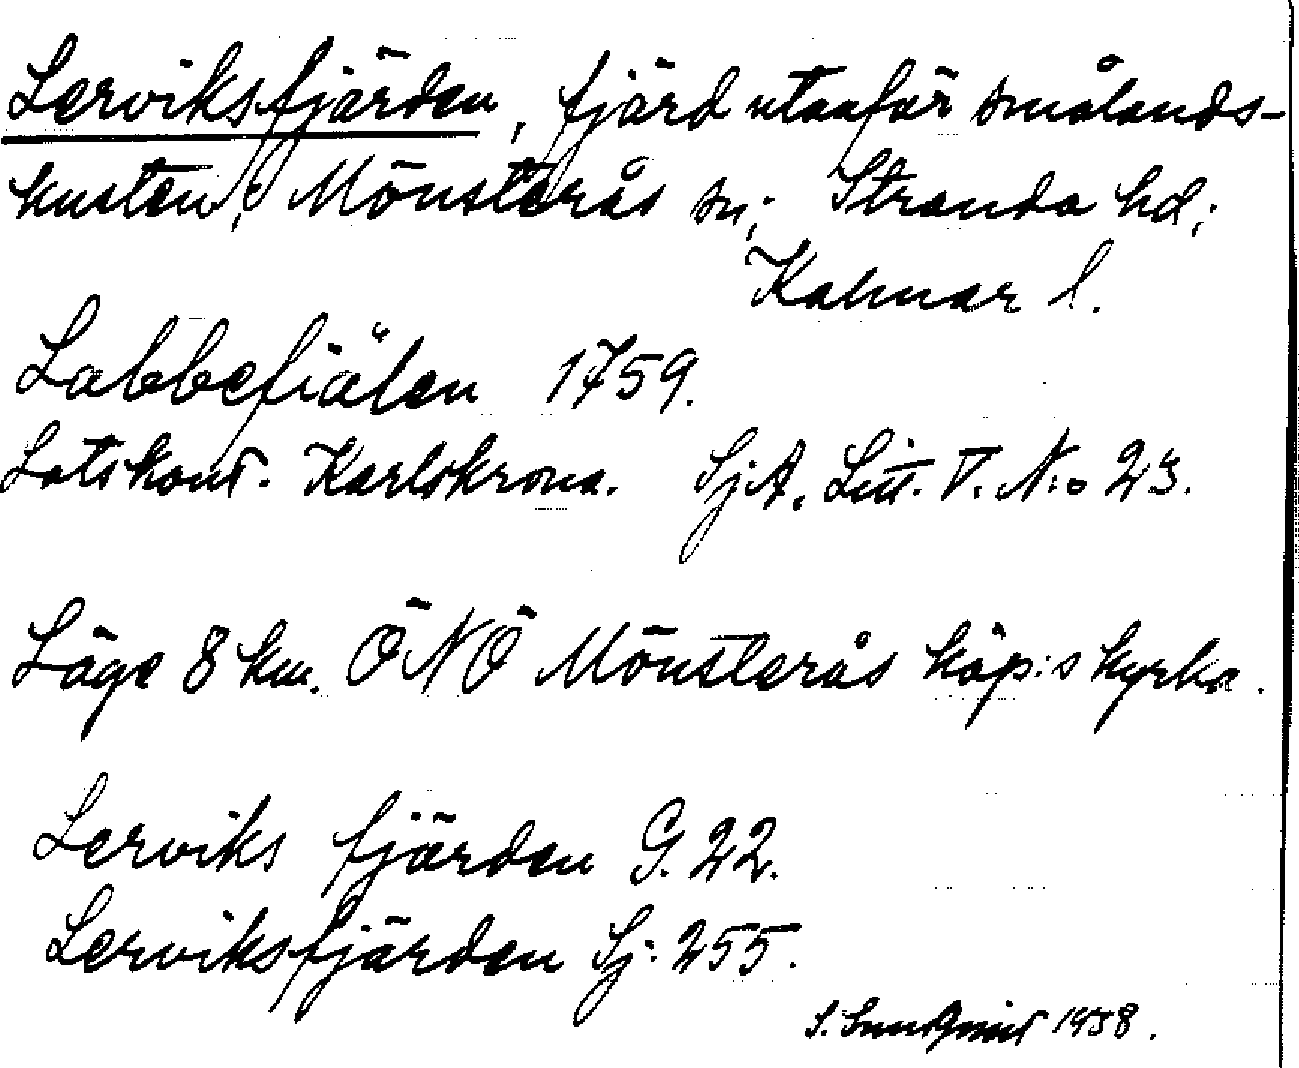 Lerviksfjärden, fjärd utanför smålands-
kusten; Mönsterås sn; Stranda hd;
Kalmar l.
Labbefiälen 1759.
Lotskont. Karlskrona. SjA. Litt. V. N:o 23.
Läge 8 km. ÖNÖ Mönsterås köp:s kyrka.
Lerviks fjärden G. 22.
Lerviksfjärden Sj: 255.
S. 1938.